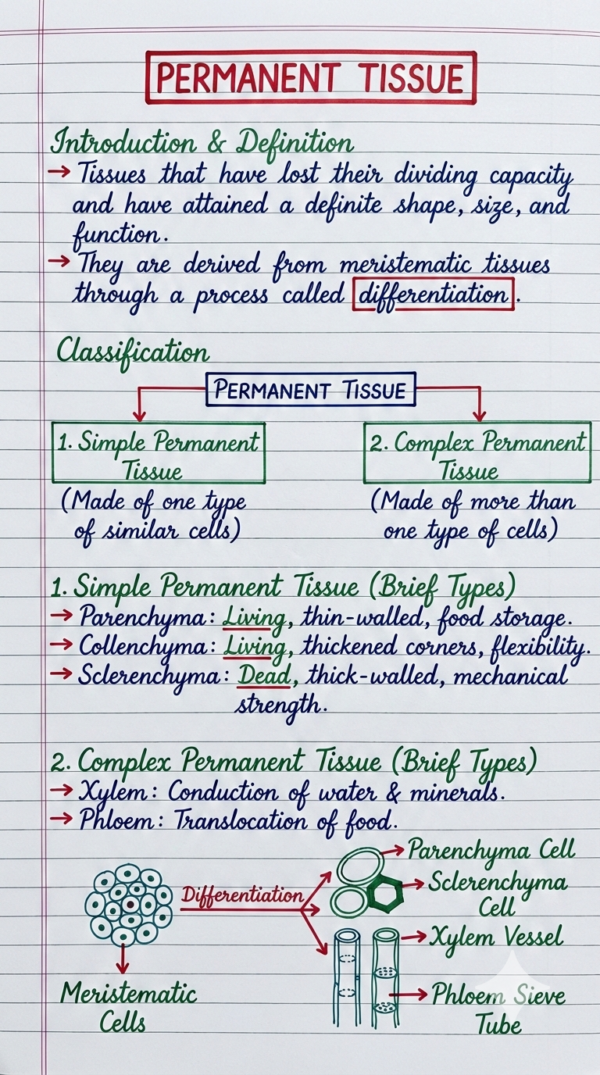 PERMANENT TISSUE
Introduction & Definition
→ Tissues that have lost their dividing capacity
and have attained a definite shape, size, and
function.
→ They are derived from meristematic tissues
through a process called differentiation.
Classification
PERMANENT TISSUE
1. Simple Permanent
Tissue
(Made of one type
of similar cells)
2. Complex Permanent
Tissue
(Made of more than
one type of cells)
1. Simple Permanent Tissue (Brief Types)
→ Parenchyma: Living, thin-walled, food storage.
→ Collenchyma: Living, thickened corners, flexibility.
→ Sclerenchyma: Dead, thick-walled, mechanical
strength.
2. Complex Permanent Tissue (Brief Types)
→ Xylem: Conduction of water & minerals.
→ Phloem: Translocation of food.
Differentiation
Meristematic
Cells
Parenchyma Cell
Sclerenchyma
Cell
Xylem Vessel
Phloem Sieve
Tube